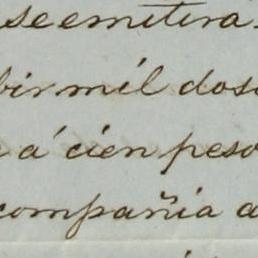 se emitirá
bir mil dosc
a á cien peso
compañia d